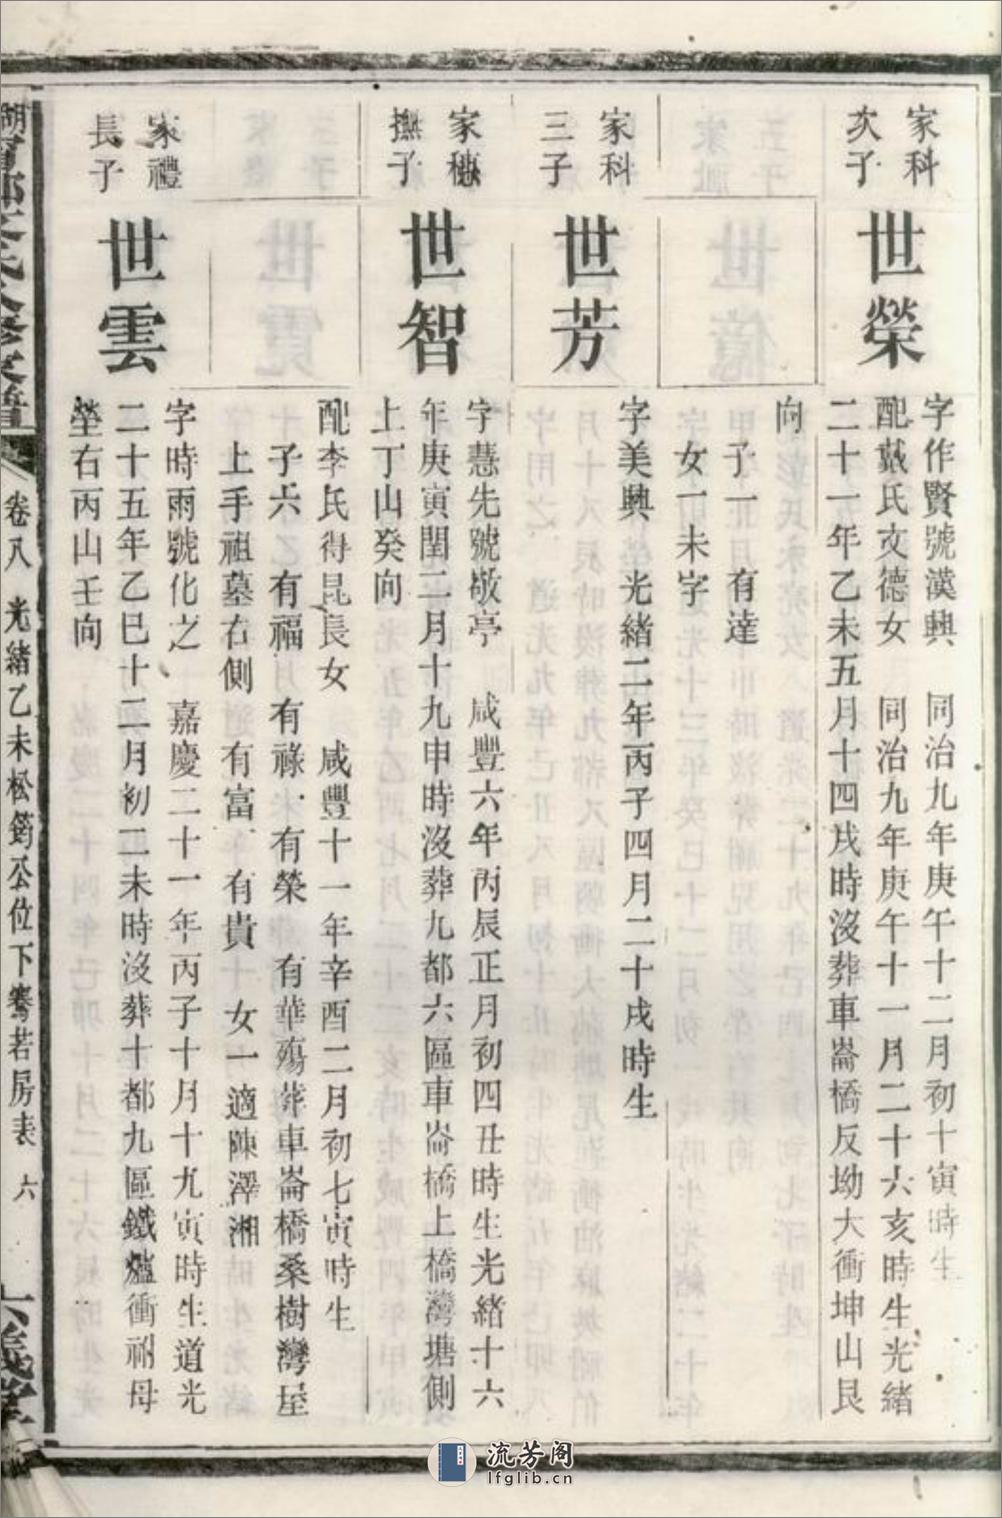 家科
次子
世榮
字作賢號漢興　同治九年庚午十二月初十寅時生
配戴氏文德女　同治九年庚午十一月二十六亥時生光緒
二十一年乙未五月十四戌時沒葬車崙橋反坳大衝坤山艮
向
子一　有達
女一未字
家科
三子
世芳
字美興　光緒二年丙子四月二十戌時生
家穗
撫子
世智
字慧先號敬亭　咸豐六年丙辰正月初四丑時生光緒十六
年庚寅閏二月十九申時沒葬九都六區車崙橋上橋灣塘側
上丁山癸向
配李氏得昆長女　咸豐十一年辛酉二月初七寅時生
子六　有福　有祿　有榮　有華殤葬車崙橋桑樹灣屋
上手祖墓右側　有富　有貴　女一適陳澤湘
家禮
長子
世雲
字時雨號化之　嘉慶二十一年丙子十月十九寅時生道光
二十五年乙巳十二月初二未時沒葬十都九區鐵爐衝祔母
塋右丙山壬向
卷八　光緒乙未松筠公位下騫若房表　六
六義堂
流芳阁
lfglib.cn